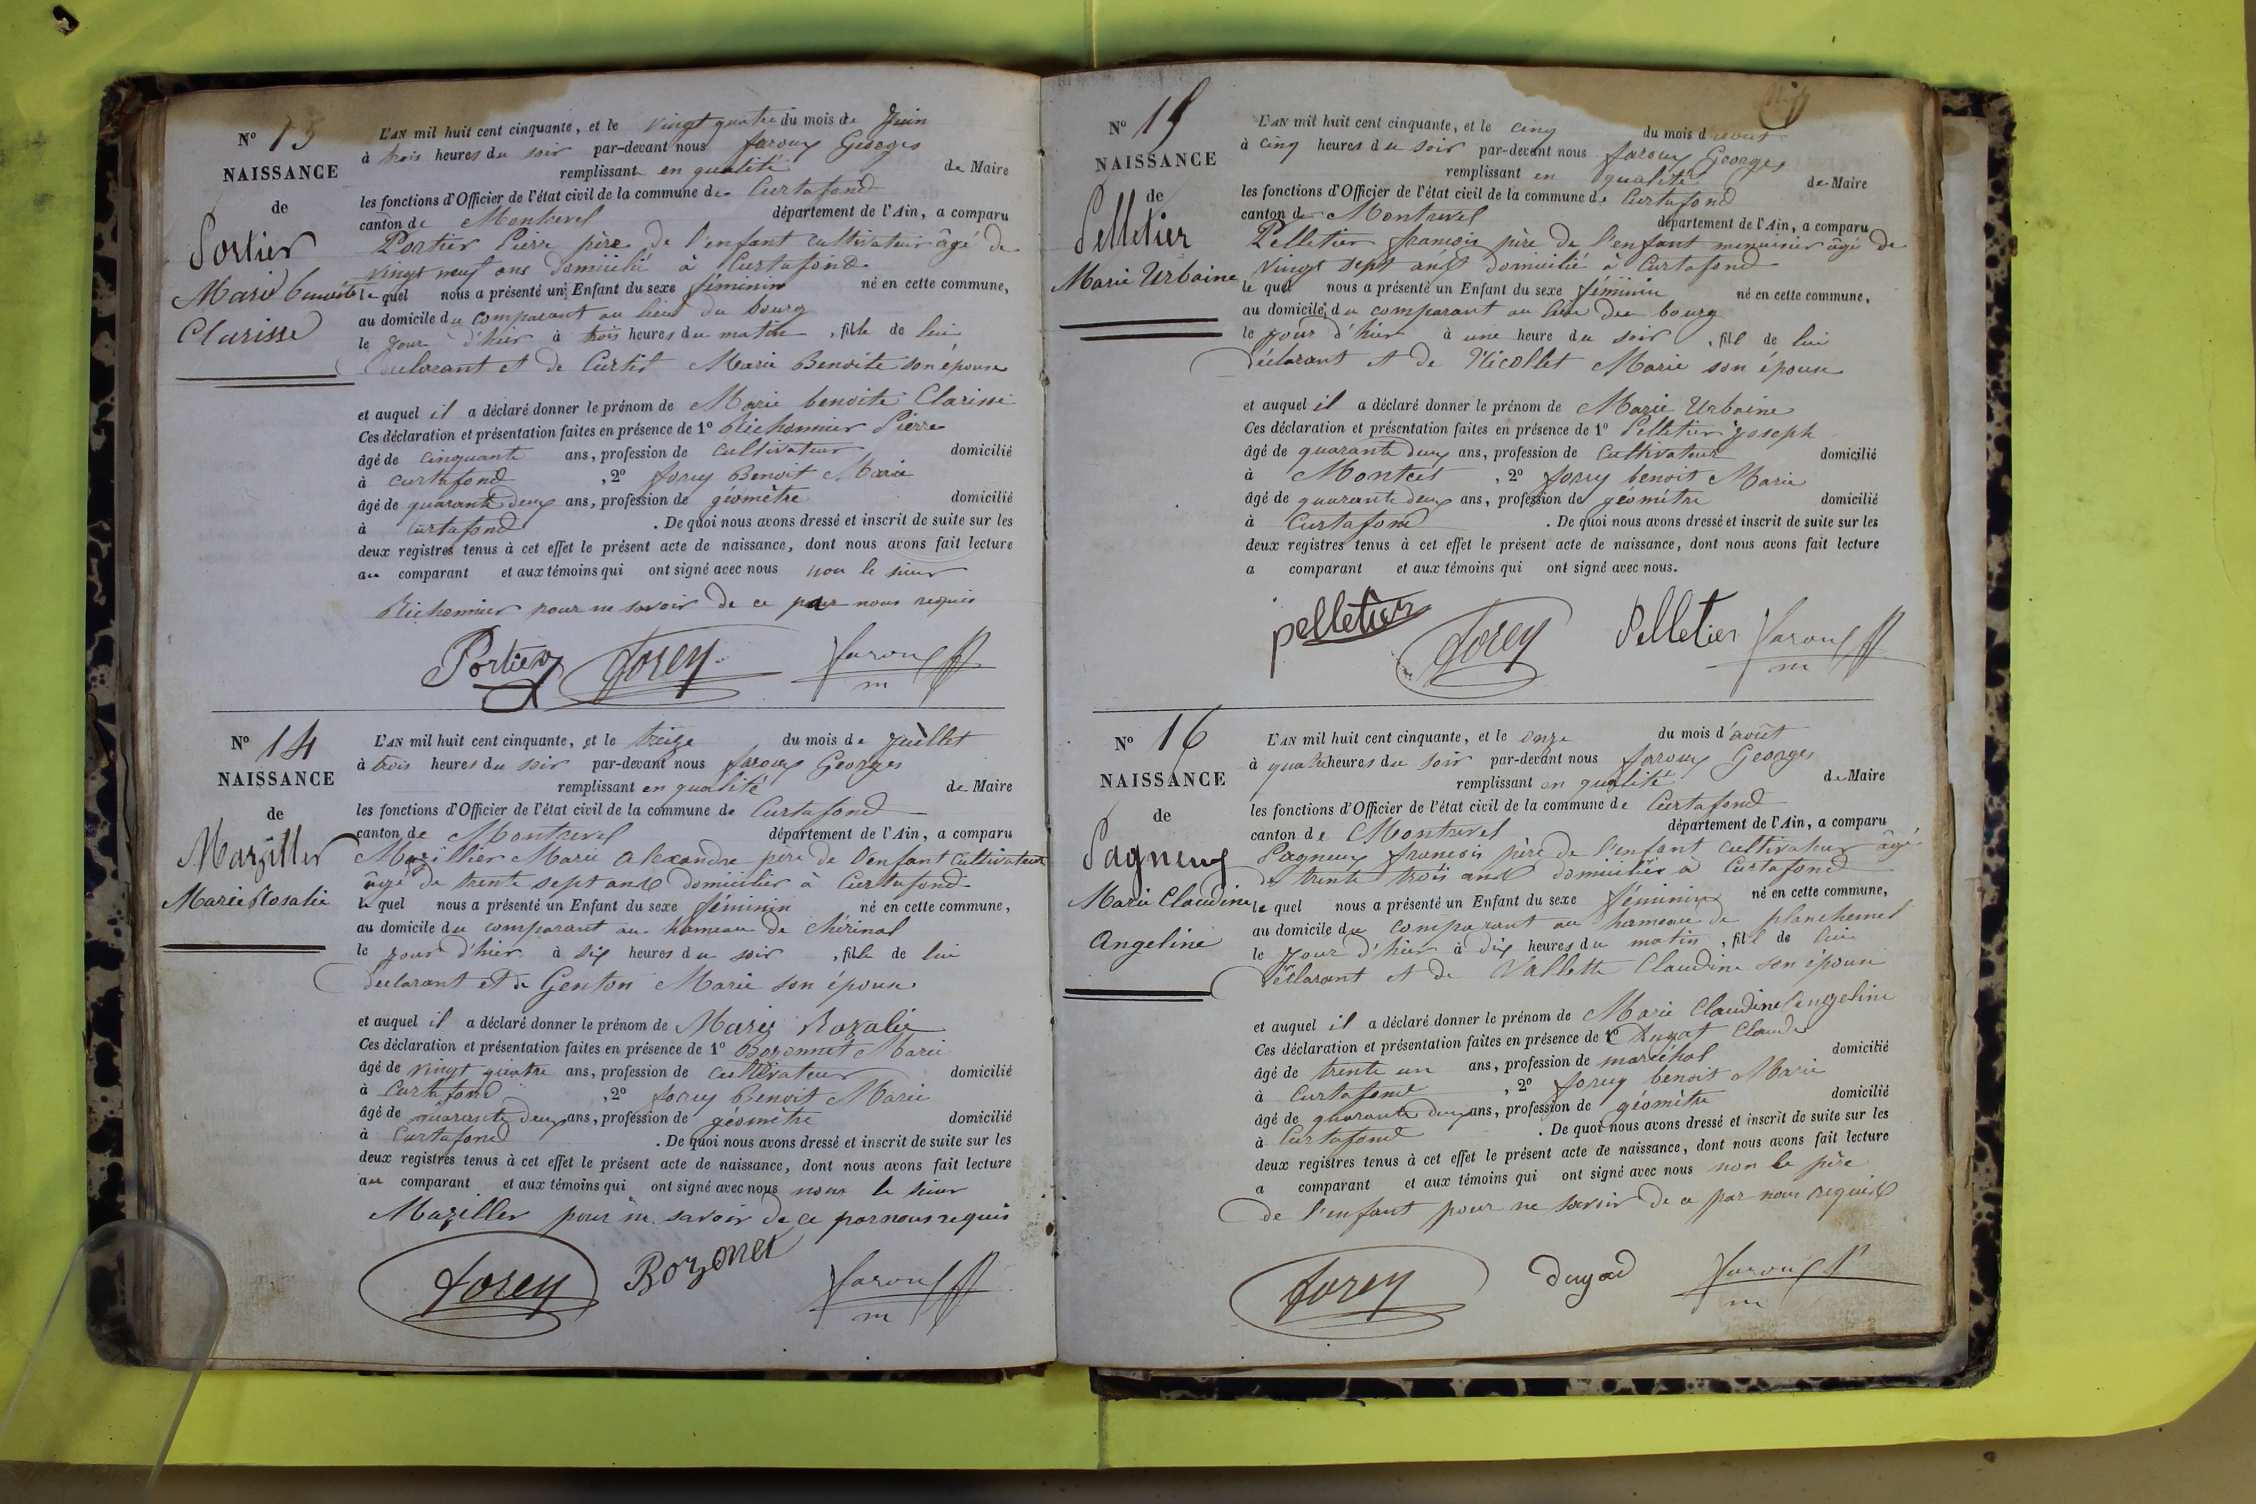 N° 13
NAISSANCE
de
Portier
Marie benoite
Clarisse
L'AN mil huit cent cinquante, et le vingt quatre du mois de Juin
à trois heures du soir par-devant nous faroux Georges
remplissant en qualité de Maire
les fonctions d'Officier de l'état civil de la commune de Curtafond
canton de Montrevel département de l'Ain, a comparu
Portier Pierre père de l'enfant cultivateur âgé de
vingt neuf ans domicilié à Curtafond
le quel nous a présenté un Enfant du sexe féminin né en cette commune,
au domicile du comparant au lieu du bourg
le jour d'hier à trois heures du matin, fille de lui
déclarant et de Curtil Marie Benoite son épouse
et auquel il a déclaré donner le prénom de Marie benoite Clarisse
Ces déclaration et présentation faites en présence de 1° Pierre
âgé de cinquante ans, profession de cultivateur domicilié
à curtafond, 2° forey Benoit Marie
âgé de quarante deux ans, profession de géomètre domicilié
à Curtafond. De quoi nous avons dressé et inscrit de suite sur les
deux registres tenus à cet effet le présent acte de naissance, dont nous avons fait lecture
au comparant et aux témoins qui ont signé avec nous non le sieur
pour ne savoir de ce par nous requis
Portier forey faroux
m
N° 14
NAISSANCE
de
Maziller
Marie Rosalie
L'AN mil huit cent cinquante, et le treize du mois de Juillet
à trois heures du soir par-devant nous faroux Georges
remplissant en qualité de Maire
les fonctions d'Officier de l'état civil de la commune de Curtafond
canton de Montrevel département de l'Ain, a comparu
Mazillier Marie Alexandre père de l'enfant cultivateur
âgé de trente sept ans domicilier à Curtafond
le quel nous a présenté un Enfant du sexe féminin né en cette commune,
au domicile du comparant au hameau de Chérinal
le jour d'hier à six heures du soir, fille de lui
déclarant et de Genton Marie son épouse
et auquel il a déclaré donner le prénom de Marie Rozalie
Ces déclaration et présentation faites en présence de 1° Bozonnet Marie
âgé de vingt quatre ans, profession de cultivateur domicilié
à Curtafond, 2° forey Benoit Marie
âgé de quarante deux ans, profession de géomètre domicilié
à Curtafond. De quoi nous avons dressé et inscrit de suite sur les
deux registres tenus à cet effet le présent acte de naissance, dont nous avons fait lecture
au comparant et aux témoins qui ont signé avec nous non le sieur
Maziller pour ne savoir de ce par nous requis
forey Bozonet faroux
m
N° 15
NAISSANCE
de
Pelletier
Marie Urbaine
L'AN mil huit cent cinquante, et le cinq du mois d'aout
à cinq heures du soir par-devant nous faroux Georges
remplissant en qualité de Maire
les fonctions d'Officier de l'état civil de la commune de Curtafond
canton de Montrevel département de l'Ain, a comparu
Pelletier francois père de l'enfant menuisier âgé de
vingt sept ans domicilié à Curtafond
le quel nous a présenté un Enfant du sexe féminin né en cette commune,
au domicile du comparant au lieu du bourg
le jour d'hier à une heure du soir, fil de lui
déclarant et de Nicollet Marie son épouse
et auquel il a déclaré donner le prénom de Marie Urbaine
Ces déclaration et présentation faites en présence de 1° Pelletier joseph
âgé de quarante deux ans, profession de Cultivateur domicilié
à Montcet, 2° forey benoit Marie
âgé de quarante deux ans, profession de géomètre domicilié
à Curtafond. De quoi nous avons dressé et inscrit de suite sur les
deux registres tenus à cet effet le présent acte de naissance, dont nous avons fait lecture
a comparant et aux témoins qui ont signé avec nous.
pelletier forey Pelletier faroux
m
N° 16
NAISSANCE
de
Pagneux
Marie Claudine
Angeline
L'AN mil huit cent cinquante, et le onze du mois d'août
à quatre heures du soir par-devant nous faroux Georges
remplissant en qualité de Maire
les fonctions d'Officier de l'état civil de la commune de Curtafond
canton de Montrevel département de l'Ain, a comparu
Pagneux francois père de l'enfant cultivateur âgé
de trente trois ans domicilier à Curtafond
le quel nous a présenté un Enfant du sexe féminin né en cette commune,
au domicile du comparant au hameau de planchemel
le jour d'hier à dix heures du matin, fil de lui
déclarant et de Vallette Claudine son épouse
et auquel il a déclaré donner le prénom de Marie Claudine Angeline
Ces déclaration et présentation faites en présence de 1° Claude
âgé de trente un ans, profession de maréchal domicilié
à Curtafond, 2° forey benoit Marie
âgé de quarante deux ans, profession de géomètre domicilié
à Curtafond. De quoi nous avons dressé et inscrit de suite sur les
deux registres tenus à cet effet le présent acte de naissance, dont nous avons fait lecture
a comparant et aux témoins qui ont signé avec nous non le père
de l'enfant pour ne savoir de ce par nous requis
forey faroux
m